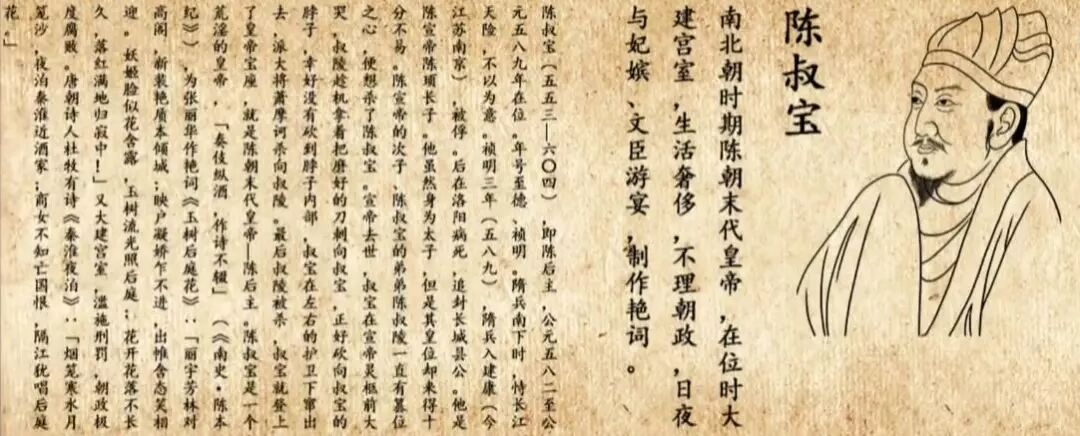 陈叔宝
南北朝时期陈朝末代皇帝，在位时大
建宫室，生活奢侈，不理朝政，日夜
与妃嫔、文臣游宴，制作艳词。
陈叔宝（五五三—六〇四），即陈后主，公元五八二至公
元五八九年在位。年号至德、祯明。隋兵南下时，恃长江
天险，不以为意。祯明三年（五八九），隋兵入建康（今
江苏南京），被俘。后在洛阳病死，追封长城县公。他是
陈宣帝陈顼长子。他虽然身为太子，但是其皇位却来得十
分不易。陈宣帝的次子、陈叔宝的弟弟陈叔陵一直有篡位
之心，便想杀了陈叔宝。宣帝去世，叔宝在宣帝灵柩前大
哭，叔陵趁机拿着把磨好的刀刺向叔宝，正好砍向叔宝的
脖子，幸好没有砍到脖子内部，叔宝在左右的护卫下窜出
去，派大将萧摩诃杀向叔陵。最后叔陵被杀，叔宝就登上
了皇帝宝座，就是陈朝末代皇帝—陈后主。陈叔宝是一个
荒淫的皇帝，「奏伎纵酒，作诗不辍」（《南史·陈本
纪》），为张丽华作艳词《玉树后庭花》：「丽宇芳林对
高阁，新装艳质本倾城；映户凝娇乍不进，出帷含态笑相
迎。妖姬脸似花含露，玉树流光照后庭；花开花落不长
久，落红满地归寂中！」又大建宫室，滥施刑罚，朝政极
度腐败。唐朝诗人杜牧有诗《秦淮夜泊》：「烟笼寒水月
笼沙，夜泊秦淮近酒家；商女不知亡国恨，隔江犹唱后庭
花。」